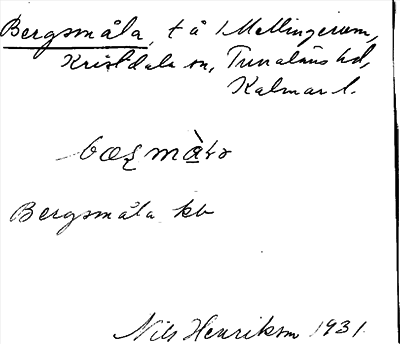 Bergsmåla, t å 1 Mellingerum,
Kristdala sn, Tunaläns hd,
Kalmar l.
Bergsmåla kb
Nils Henrikson 1931.